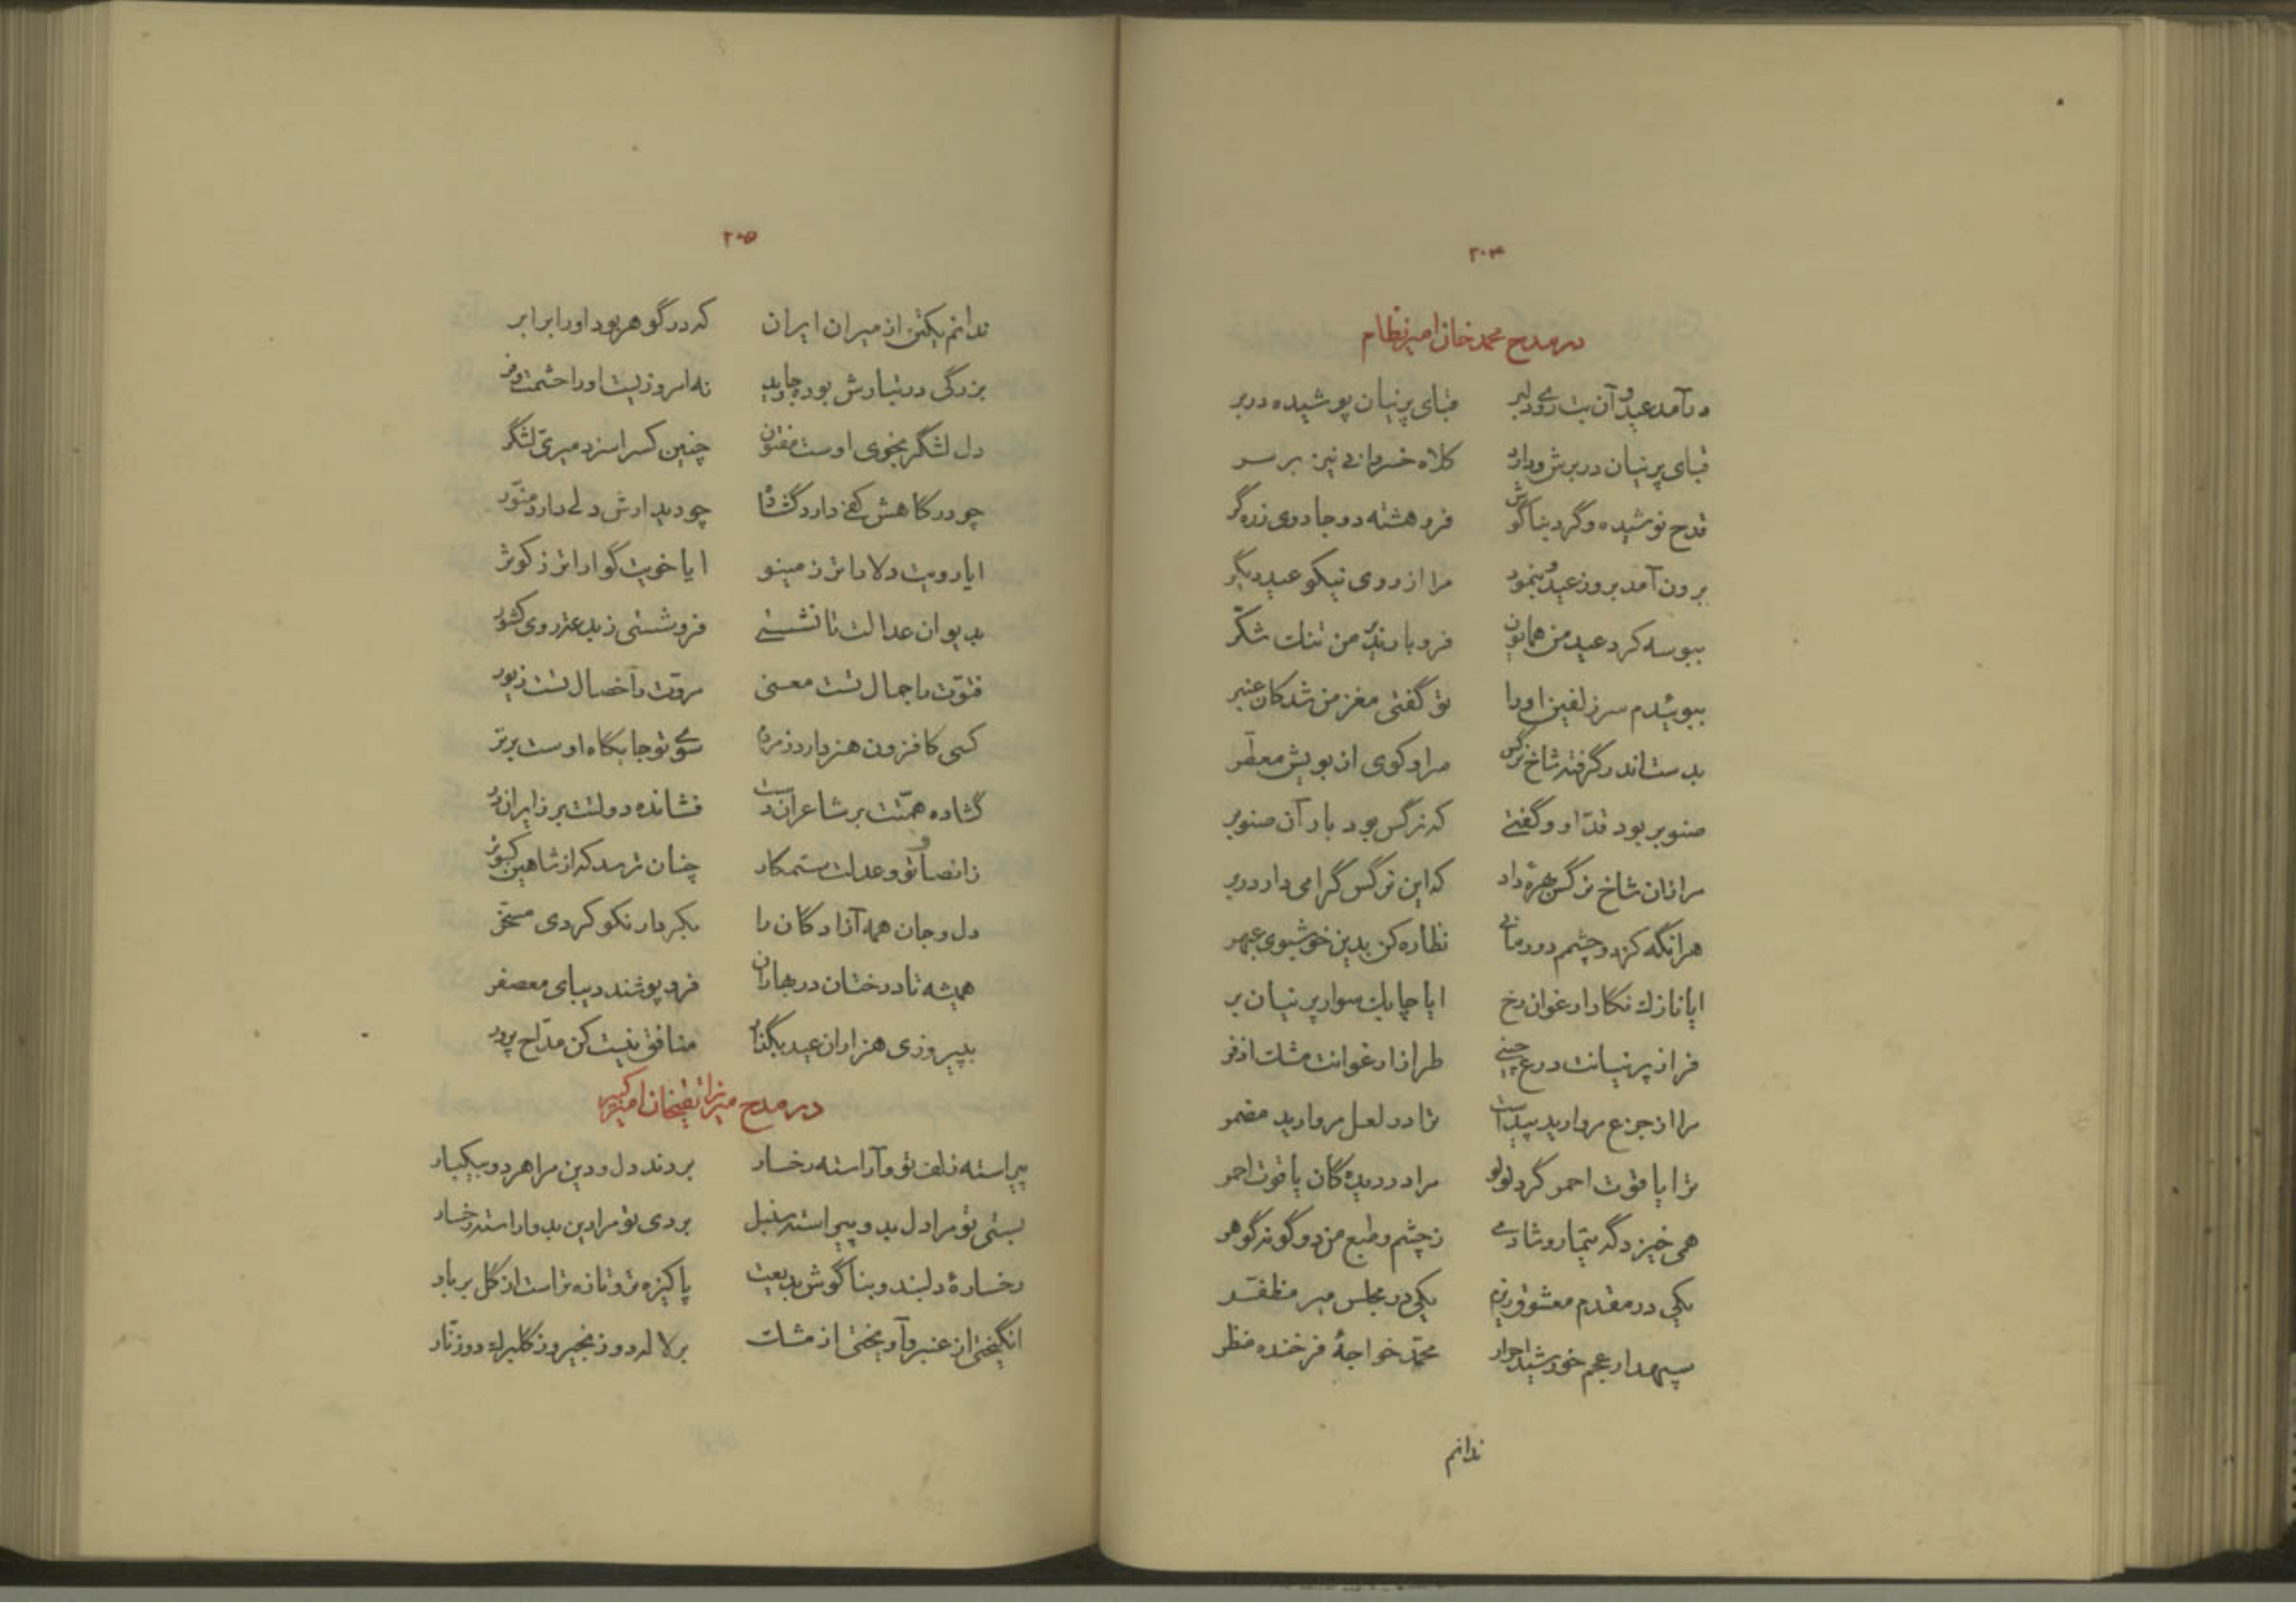 ۲۰۴
در مدح محمد خان امیر نظام
درآمد عید و آن بت روی دلبر قبای پرنیان پوشیده در بر
قبای پرنیان در برش و دارد کلاه خسروانی نیز بر سر
قدح نوشیده و گرد بناگوش فرو هشته دو جادوی زره گر
برون آمد بروز عید و بنمود مرا از روی نیکو عید دیگر
ببوسه کرد عید من همایون فرو بارید بر من تنك شکّر
ببوئیدم سر زلفین او را تو گفتی مغز من شد کان عنبر
بدست اندر گرفته شاخ نرگس سرا و کوی از بویش معطّر
صنوبر بود قدّ او و گفتی که نرگس بود بار آن صنوبر
مرا زان شاخ نرگس بهره داد که این نرگس گرامی دار در بر
هرانگه کز دو چشمم دور مانی نظاره کن بدین خوشبوی عبهر
ایا نازك نگار ارغوان رخ ایا چابك سوار پرنیان بر
فراز پرنیانت درع چینی طراز ارغوانت مشك اذفر
مرا از جزع مروارید پیداست ترا در لعل مروارید مضمر
ترا یا قوت احمر گرد لولو مرا در دیده کان یاقوت احمر
همی خیزد گه تیمار و شادی ز چشم و طبع من دو گونه گوهر
یکی در مقدم معشوق ریزم یکی در مجلس میر مظفّر
سپهدار عجم خورشید احرار محمّد خواجهٔ فرخنده منظر
ندانم
۲۰۵
ندانم یکتن از میران ایران که در گوهر بود او را برابر
بزرگی در تبارش بود جاوید نه امروزیست او را حشمت و فر
دل لشگر بخوی اوست مفتون چنین کس را سزد میریّ لشگر
چو درگاهش کفی دارد گشاده چو دیدارش دلی دارد منوّر
ایا رویت دلاراتر ز مینو ایا خویت گواراتر ز کوثر
بدیوان عدالت تا نشستی فرو شستی ز بدعت روی کشور
فتوّت با جمال تست معنی مروّت با خصال تست زیور
کسی کافزون هنر دارد ز مردم سوی تو جایگاه اوست برتر
گشاده همّتت بر شاعران دست فشانده دولتت بر زایران زر
ز انصاف تو و عدلت ستمکار چنان ترسد که از شاهین کبوتر
دل و جان همه آزادگان را بکردار نکو کردی مسخّر
همیشه تا درختان در بهاران فرو پوشند دیبای معصفر
بپیروزی هزاران عید بگذار منافق نیست کن مدّاح پرور
در مدح میرزا تقیخان امیرکبیر
پیراسته زلف تو و آراسته رخسار بردند دل و دین مرا هر دو بیکبار
بستی تو مرا دل بدو پیراسته سنبل بردی تو مرا دین بدو اراسته رخسار
رخسارهٔ دلبند و بناگوش بدیعت پاکیزه تر و تازه تر است از گل بر بار
انگیختی از عنبر و آویختی از مشك بر لاله دو زنجیر و ز گلبرك دو زنّار